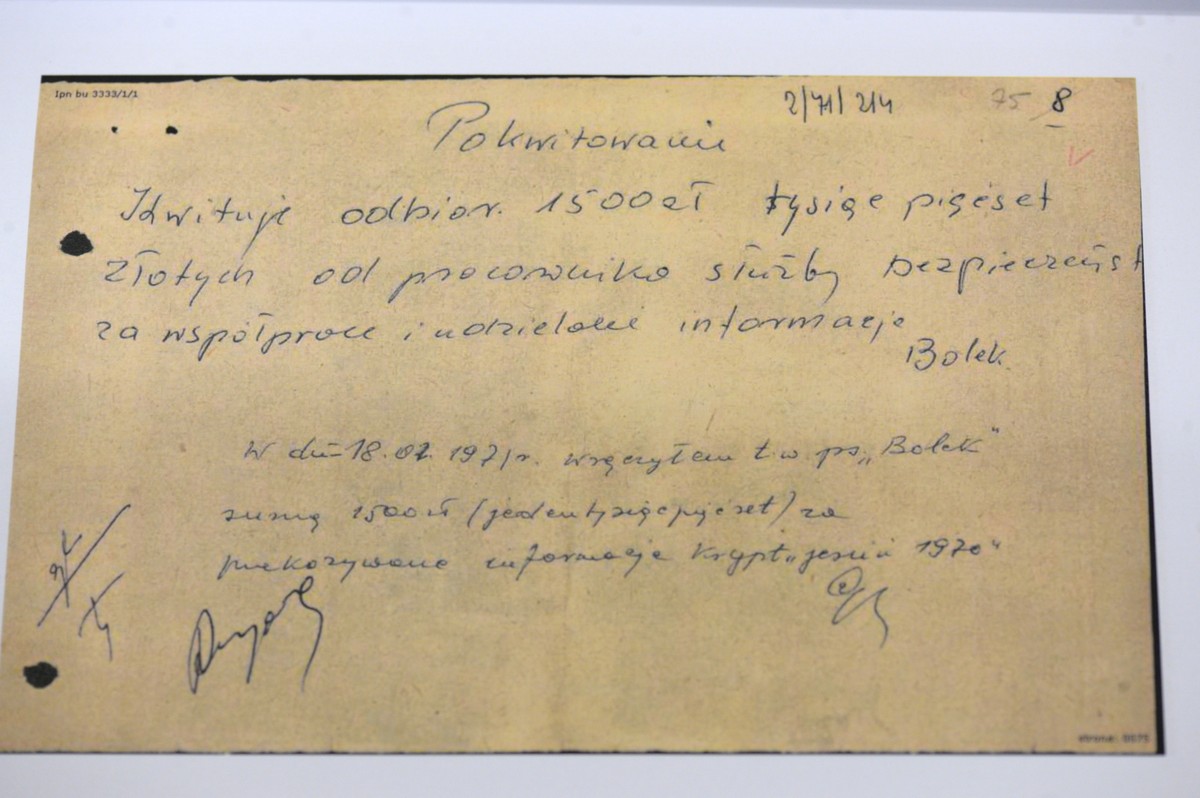 Ipn bu 3333/1/1
2/71/214 75 8
Pokwitowanie
Kwituje odbior. 1500 zł tysiąc pięćset
złotych od pracownika służby bezpieczeńst
za współprace i udzielanie informacje
Bolek
W dn-18.01.1971r. wręczyłem t.w ps „Bolek"
sumę 1500 zł (jeden tysiąc pięćset) za
przekazywane informacje krypt „jesień 1970"
strona: 0075